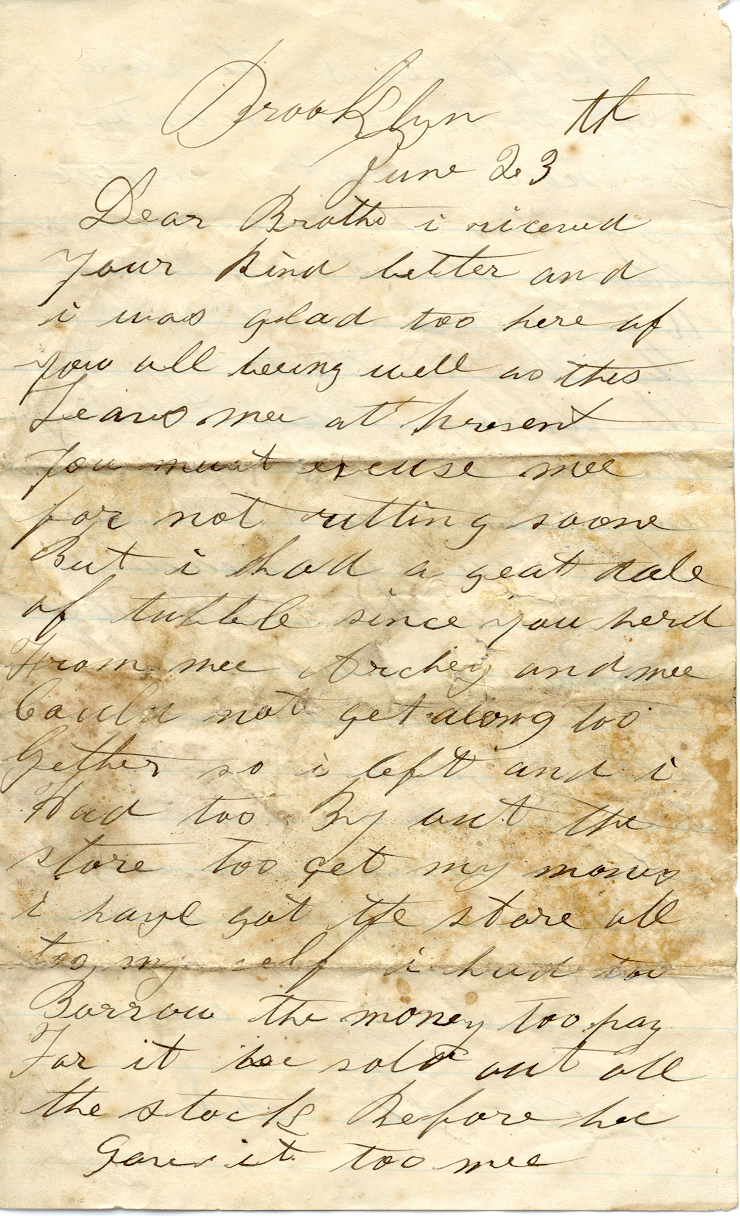 Brooklyn th
June 23
Dear Brothe i riceved
Your kind letter and
i was glad too here of
you all being well as this
Leaves mee at present
You must excuse mee
for not ritting soone
But i had a geat dale
of tubble since you herd
From mee Archey and mee
Could not get along too
Gether so i left and i
Had too By out the
store too get my money
i have got the store all
too my self i had too
Borrow the money too pay
For it hee sold out all
the stock Before hee
Gave it too mee